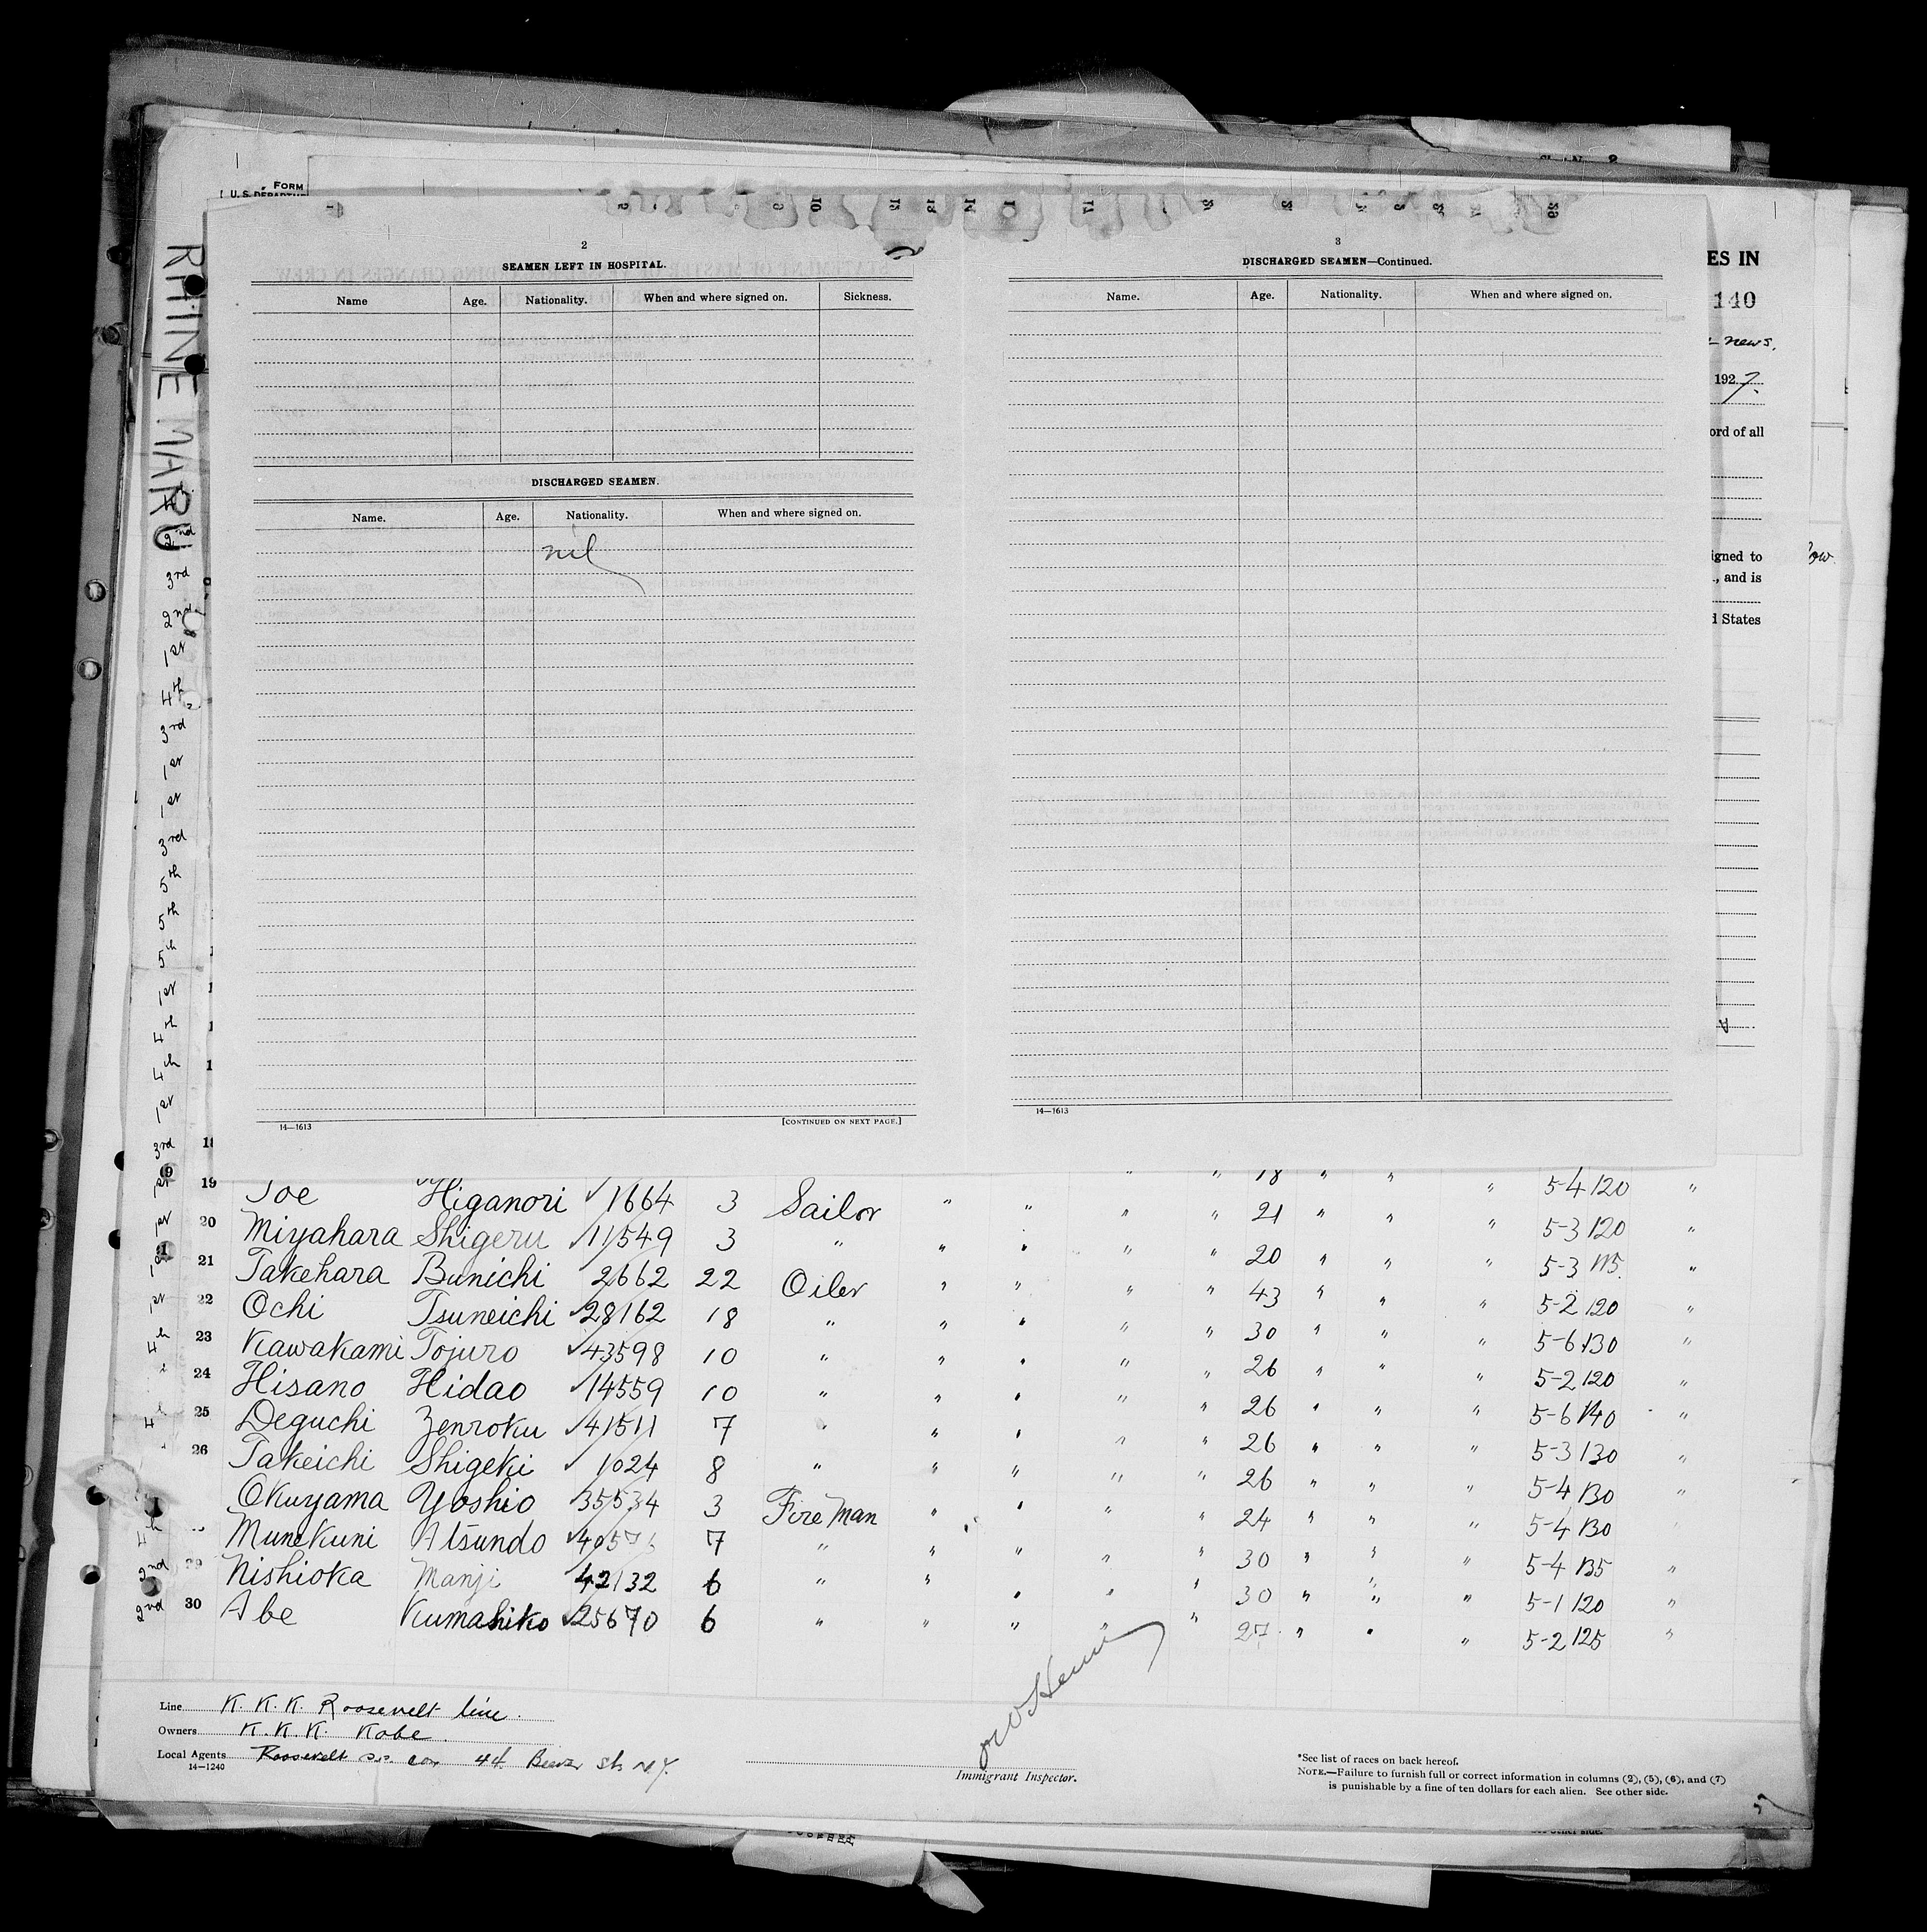 FORM
U. S. DEPARTME
RHINE MARU
2
SEAMEN LEFT IN HOSPITAL.
Name Age. Nationality. When and where signed on. Sickness.
DISCHARGED SEAMEN.
Name. Age. Nationality. When and where signed on.
nil
14—1613 [CONTINUED ON NEXT PAGE.]
3
DISCHARGED SEAMEN—Continued.
Name. Age. Nationality. When and where signed on.
14—1613
ES IN
140
news.
1927.
ord of all
igned to
, and is
d States
2nd
3rd
2nd
1st
4th
3rd
1st
1st
3rd
5th
5th
5th
1st
4th
4th
1st
3rd 18
" " 18 " " " 5-4 120 "
19 Joe Higanori ✓ 1664 3 Sailor " " " " 21 " " " 5-3 120 "
1st 20 Miyahara Shigeru ✓ 11549 3 " " " " " 20 " " " 5-3 115 "
1st 21 Takehara Bunichi 2662 22 Oiler " " " " 43 " " " 5-2 120 "
1st 22 Ochi Tsuneichi ✓ 28162 18 " " " " " 30 " " " 5-6 130 "
4th 23 Kawakami Tojuro ✓ 43598 10 " " " " " 26 " " " 5-2 120 "
" 24 Hisano Hidao ✓ 14559 10 " " " " " 26 " " " 5-6 140 "
25 Deguchi Zenroku ✓ 41511 7 " " " " " 26 " " " 5-3 130 "
26 Takeichi Shigeki ✓ 1024 8 " " " " " 26 " " " 5-4 130 "
Okuyama Yoshio 35534 3 Fire Man " " " " 24 " " " 5-4 130
4th Munekuni Atsundo 7 " " " " " 30 " " " 5-4 135 "
2nd 29 Nishioka Manji 42132 6 " " " " " 30 " " " 5-1 120 "
2nd 30 Abe Kumahiko ✓ 25670 6 " " " " " 27 " " " 5-2 125 "
Line K. K. K. Roosevelt line.
Owners K. K. K. Kobe.
Local Agents Roosevelt s.s. co. 44 Beaver St. N.Y.
14—1240
Immigrant Inspector.
*See list of races on back hereof.
NOTE.—Failure to furnish full or correct information in columns (2), (5), (6), and (7)
is punishable by a fine of ten dollars for each alien. See other side.